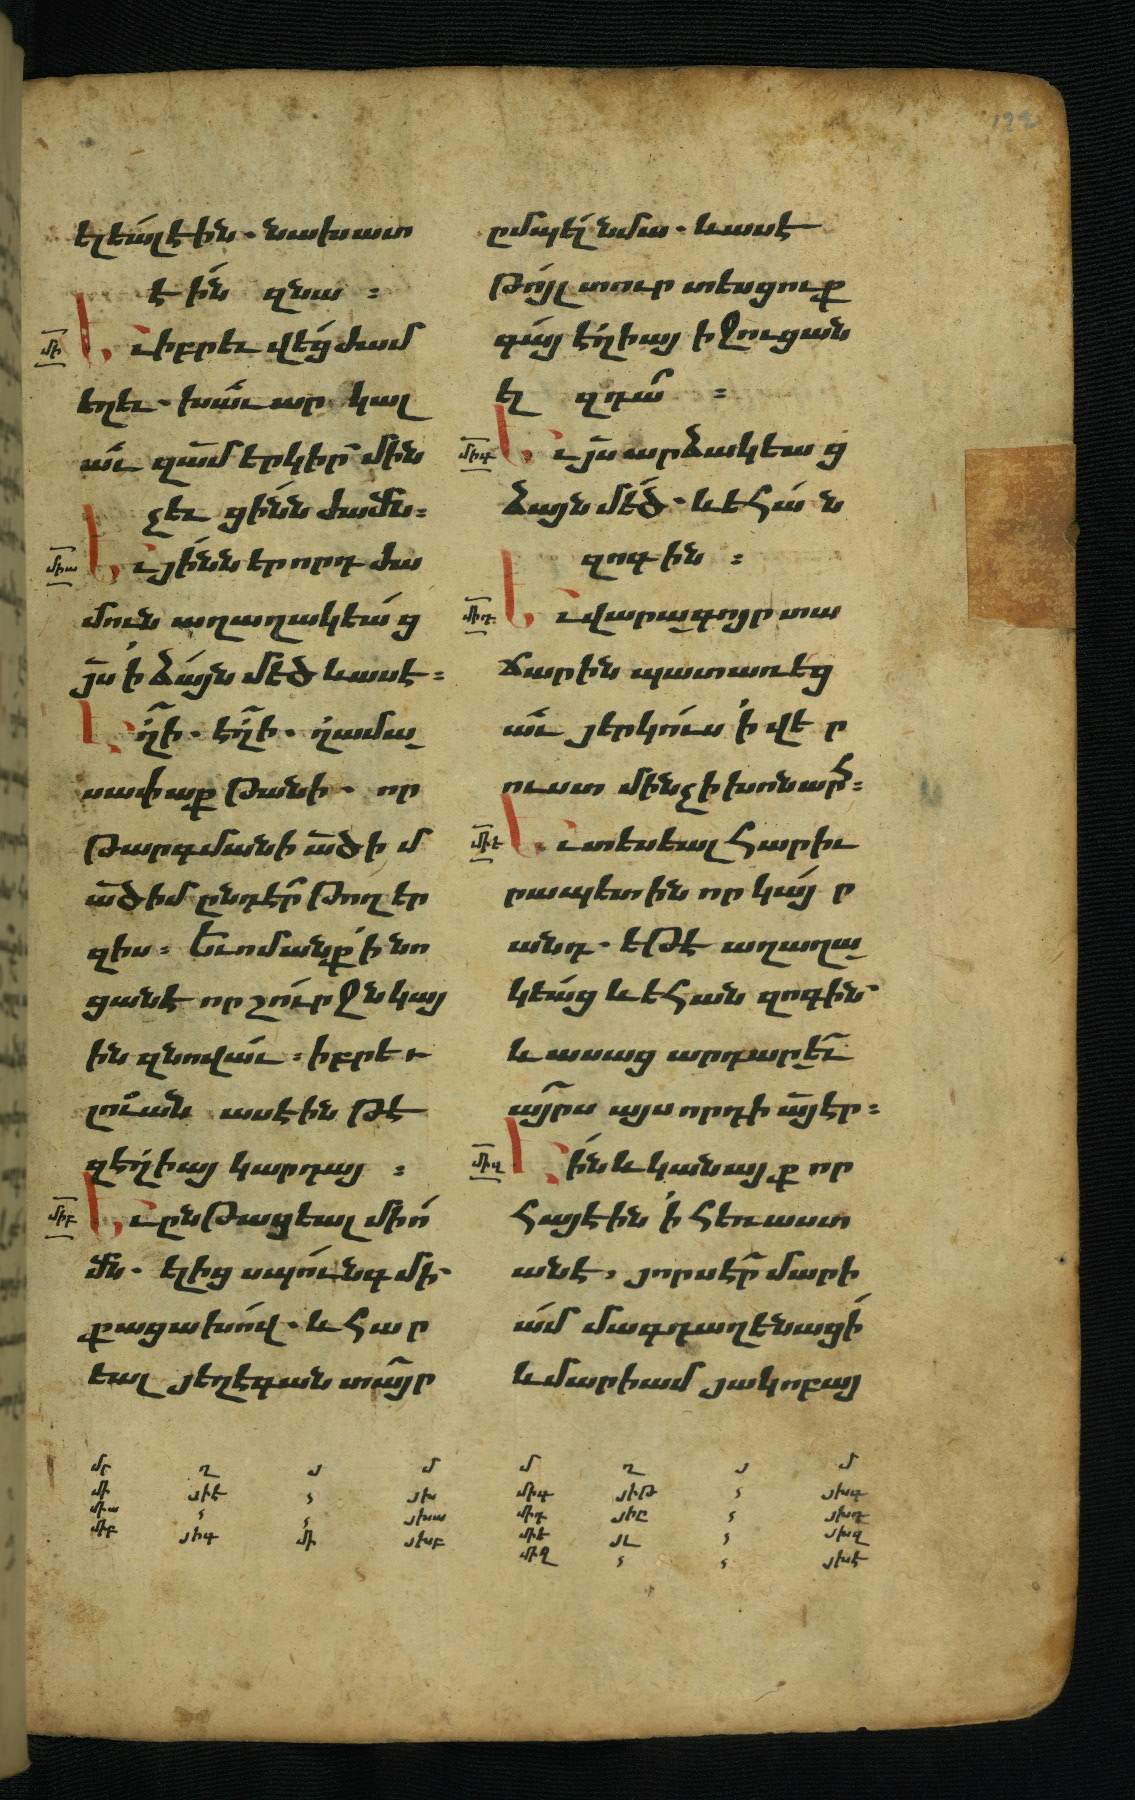 122
ելեալէին· նախատ
էին զնա :
մի Եւ իբրեւ վեց ժամ
եղեւ· խաւար կալ
աւ զամ երկիր մին
չեւ ցինն ժամն:
միա Եւ յինն երորդ ժա
մուն աղաղակեաց
յս ՛ի ձայն մեծ և ասէ:
Եղի· եղի· ղամա
սափաքթանի· որ
թարգմանի ած իմ
ած իմ ընդէր թողեր
զիս: Եւ ոմանք ՛ի նո
ցանէ որ շուրջ ն կայ
ին զնովաւ: իբրև
լուան ասէին թէ
զեղիայ կարդայ :
միբ Եւ ընթացեալ միո
մն· ելից սպունգ մի
քացախով· և հար
եալ յեղեգան տայր
ըմպել նմա· և ասէ
Թոյլ տուր տեսցուք
գայ եղիայ իջուցան
ել զդա :
միգ Եւ յս արձակեաց
ձայն մեծ· և եհան
զոգին :
միդ Եւ վարագոյր տա
ճարին պատառեց
աւ յերկուս ՛ի վեր
ուստ մինչ ի խոնարհ:
միե Եւ տեսեալ հարիւ
րապետին որ կայր
անդ· եթէ աղաղա
կեաց և եհան զոգին
և ասաց արդարեւ
այրս այս որդի այ էր:
միզ Էին և կանայք որ
հայէին ՛ի հեռաստ
անէ, յորս էր մարի
ամ մագդաղենացի
և մարիամ յակոբայ
մր ղ յ մ
մի յիե յխ
միա յխա
միբ յիզ մի յխբ
մ ղ յ մ
միգ յիթ յխգ
միդ յիը յխդ
միե յլ յխզ
միզ յխէ